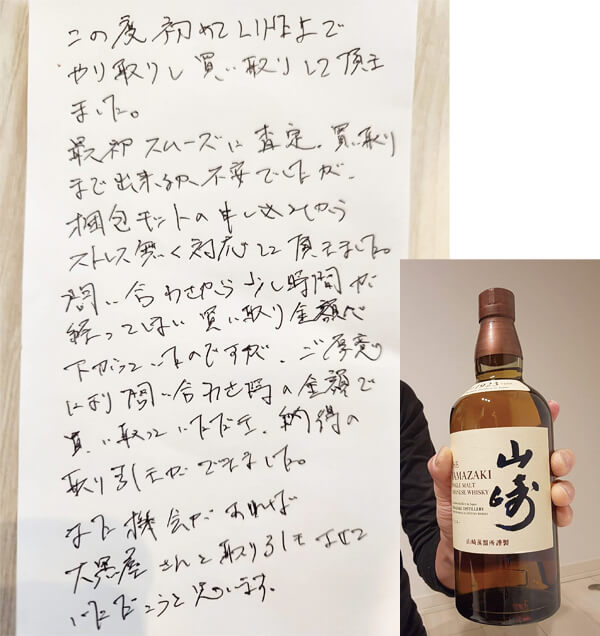 この度初めてLINE上で
やり取りし買い取りして頂き
ました。
最初スムーズに査定、買い取り
まで出来るか不安でしたが、
梱包キットの申し込みから
ストレス無く対応して頂きました。
問い合わせから少し時間が
経ってしまい買い取り金額が
下がっていたのですが、ご厚意
により問い合わせ時の金額で
買い取っていただき、納得の
取り引きができました。
また機会があれば
大黒屋さんと取り引きさせて
いただこうと思います。
1923
THE
YAMAZAKI
SINGLE MALT
JAPANESE WHISKY
山崎
YAMAZAKI DISTILLERY
山崎蒸溜所謹製